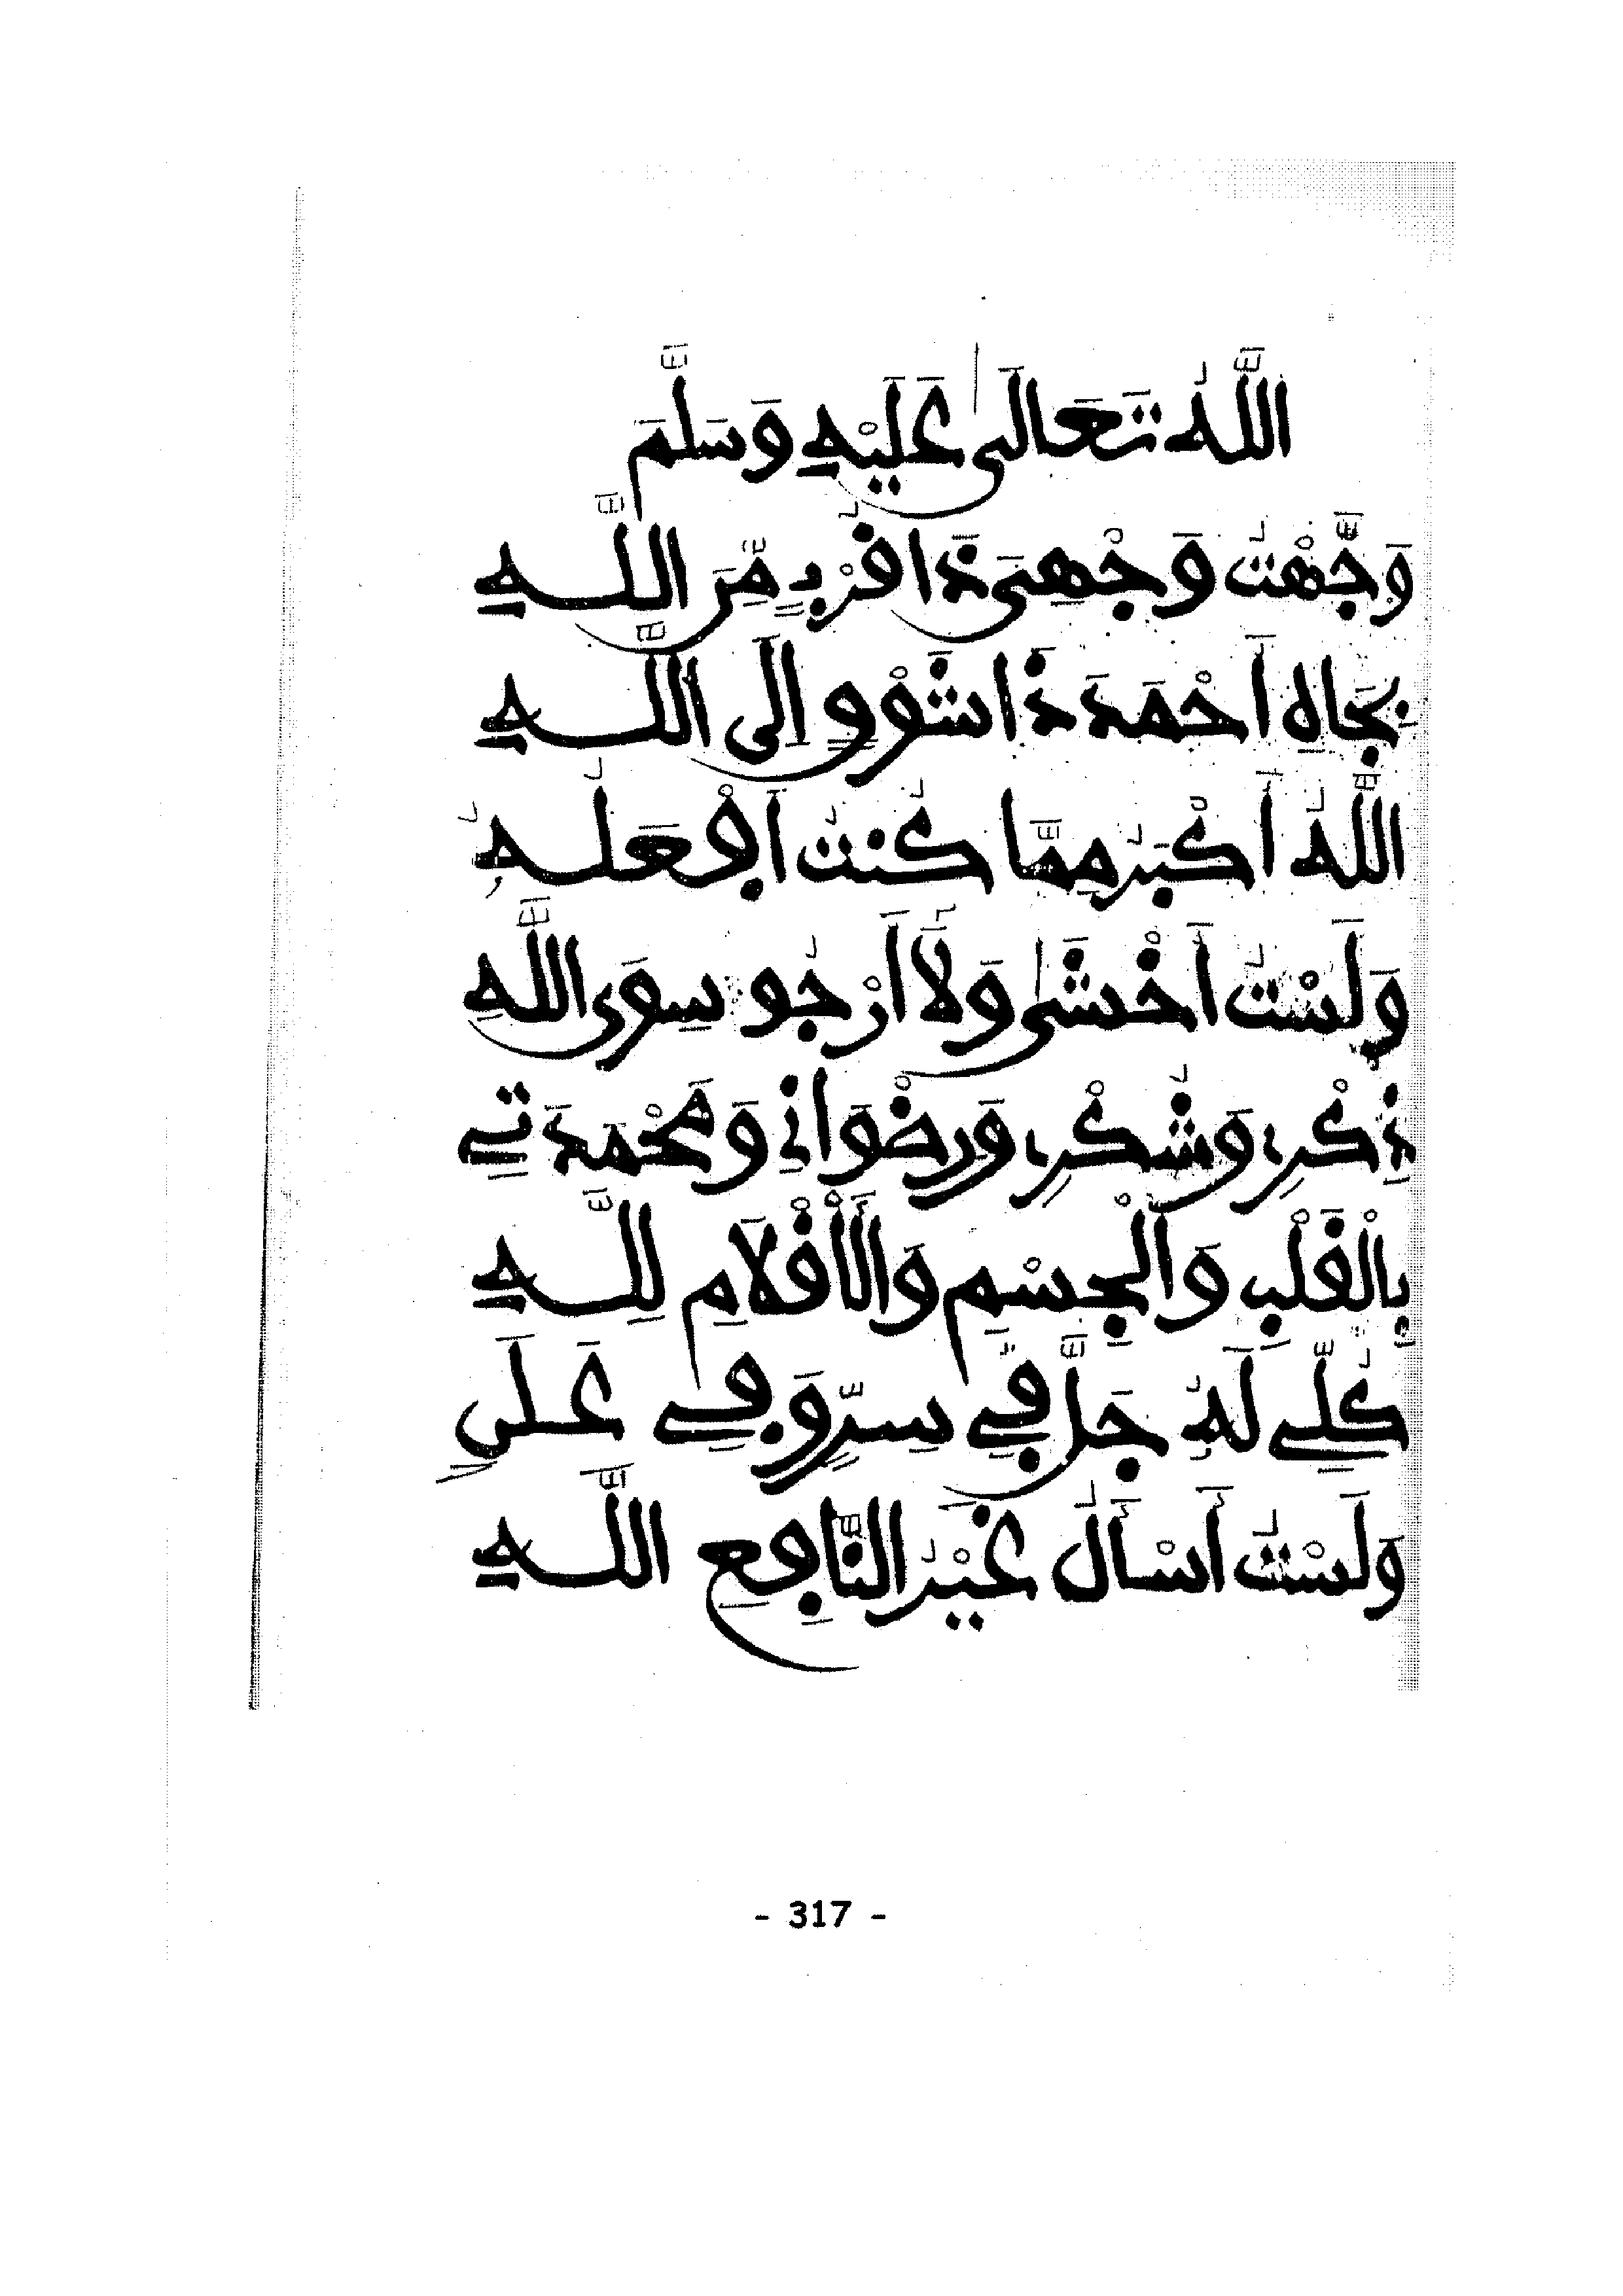 اللَّهُ تَعَالَى عَلَيْهِ وَسَلَّمَ
وَجَّهْتُ وَجْهِيَ ذَا قُرْبٍ مِّنَ اللَّهِ
بِجَاهِ أَحْمَدَ ذَا شَوْقٍ إِلَى اللَّهِ
اللَّهُ أَكْبَرُ مِمَّا كُنْتُ أَفْعَلُهُ
وَلَسْتُ أَخْشَى وَلَا أَرْجُو سِوَى اللَّهِ
ذِكْرِي وَشُكْرِي وَرِضْوَانِي وَمَحْمَدَتِي
بِالْقَلْبِ وَالْجِسْمِ وَالْأَقْلَامِ لِلَّهِ
كُلِّي لَهُ جَلَّ فِي سِرٍّ وَفِي عَلَنٍ
وَلَسْتُ أَسْأَلُ غَيْرَ النَّافِعِ اللَّهِ
- 317 -